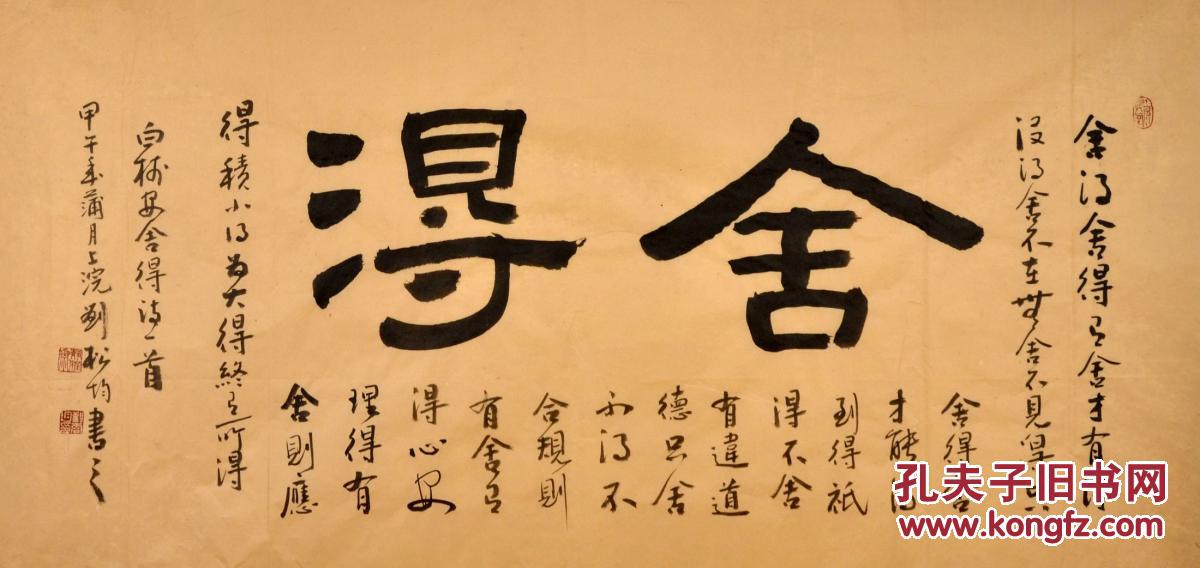 舍得舍得有舍才有
没得舍不在無舍不見得
舍得
舍得
才能
到得祇
得不舍
有違道
德只舍
不得不
合規則
有舍有
得心安
理得有
舍則應
得積小得為大得終有所得
白 安舍得詩一首
甲午年蒲月上浣劉松均書之
孔夫子旧书网
www.kongfz.com